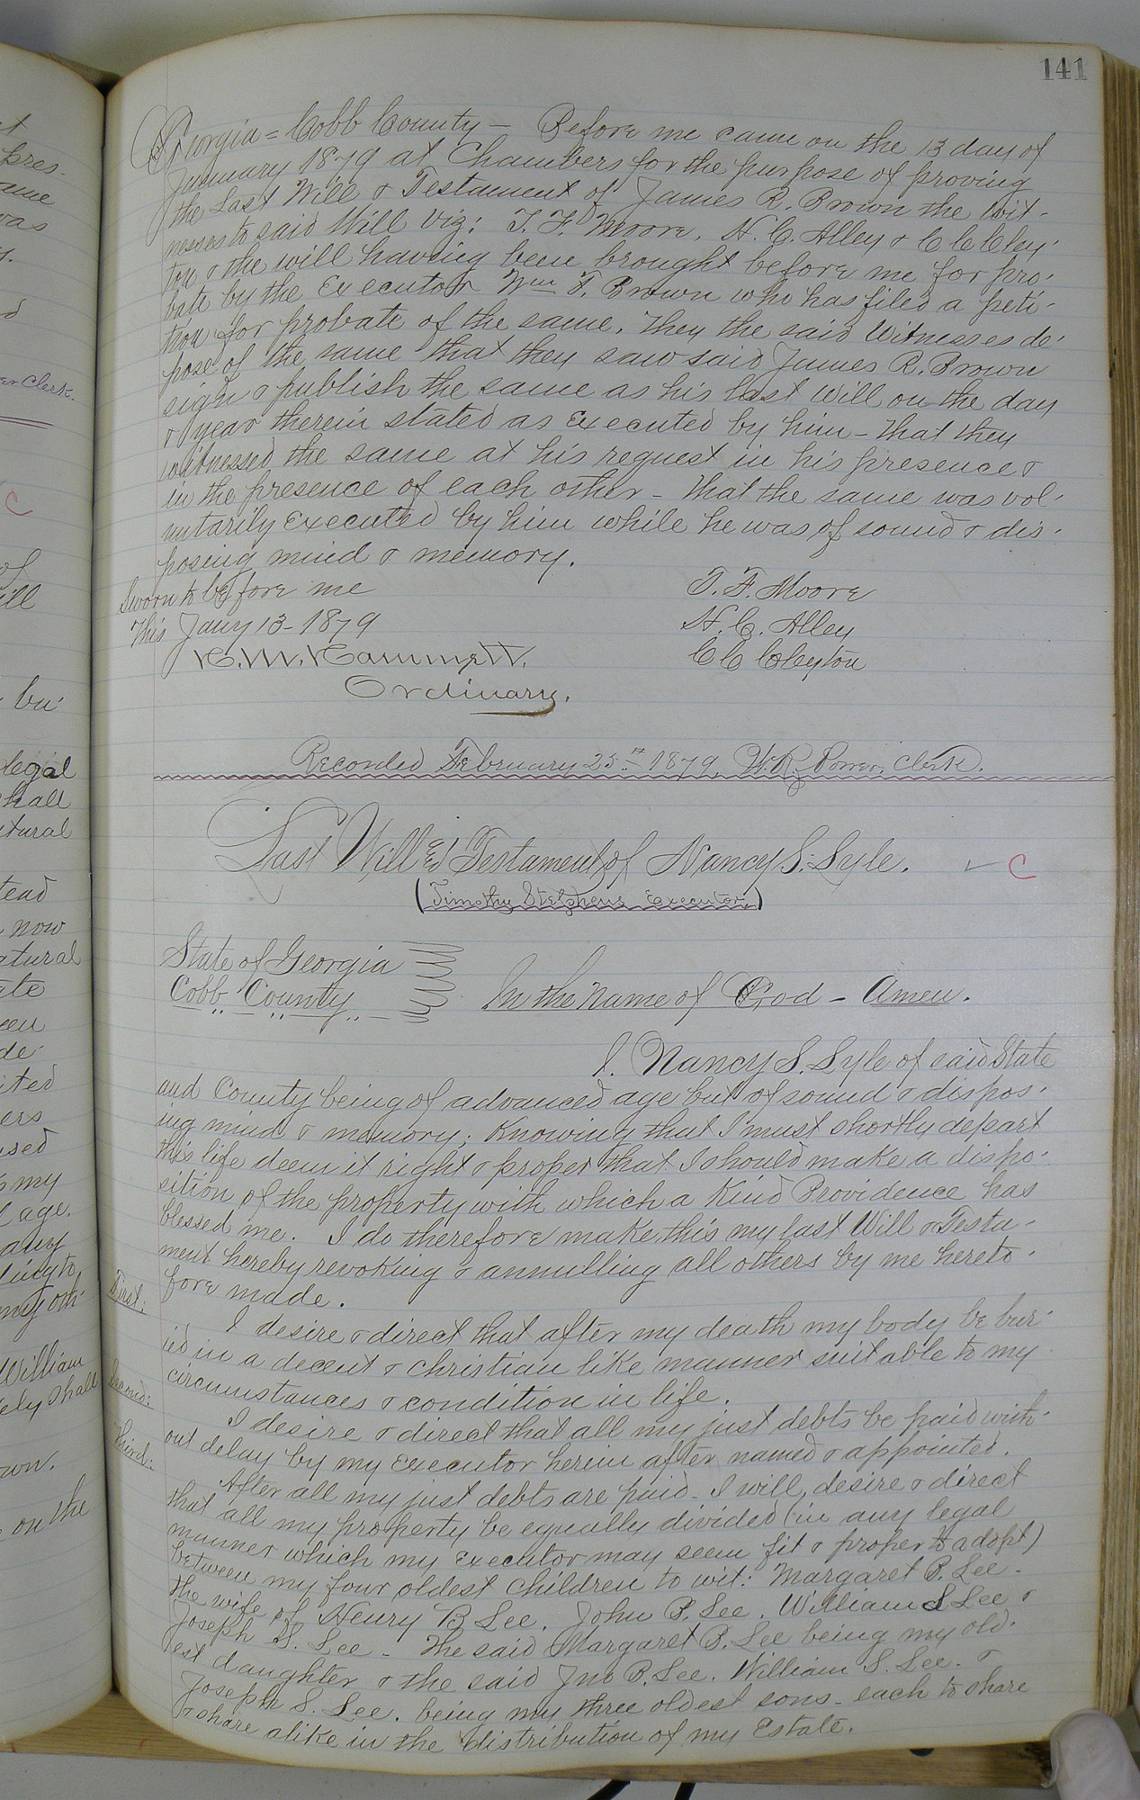 141
Georgia = Cobb County — Before me came on the 13 day of
January 1879 at Chambers for the purpose of proving
the Last Will & Testament of James R. Brown the Wit-
nesses to said Will Viz: T. F. Moore, N. C. Alley & C C Cley-
ton & the will having been brought before me for pro-
bate by the Executor Wm T. Brown who has filed a peti-
tion for probate of the same. They the said Witnesses de-
pose of the same that they saw said James R. Brown
sign & publish the same as his last Will on the day
& year therein stated as Executed by him - that they
witnessed the same at his request in his presence &
in the presence of each other - that the same was vol-
untarily Executed by him while he was of sound & dis-
posing mind & memory.
Sworn to before me
This Jany 13 - 1879
C. M. Hammett.
Ordinary.
T. F. Moore
N. C. Alley
C C Cleyton
Recorded February 25th 1879, W. R. Power, Clerk.
Last Will and Testament of Nancy S. Lyle. C
(Timothy Stephens Executor.)
State of Georgia
Cobb County
In the Name of God - Amen.
I. Nancy S. Lyle of said State
and County being of advanced age but of sound & dispos-
ing mind & memory; Knowing that I must shortly depart
this life deem it right & proper that I should make a dispo-
sition of the property with which a Kind Providence has
blessed me. I do therefore make this my last Will & Testa-
ment hereby revoking & annulling all others by me hereto-
fore made.
First:
I desire & direct that after my death my body be bur-
ied in a decent & christian like manner suitable to my
circumstances & condition in life.
Second:
I desire & direct that all my just debts be paid with-
out delay by my Executor herein after named & appointed.
Third:
After all my just debts are paid - I will, desire & direct
that all my property be equally divided (in any legal
manner which my Executor may seem fit & proper to adopt)
between my four oldest children to wit: Margaret P. Lee -
the wife of Henry B Lee, John P. Lee, William S Lee &
Joseph S. Lee - The said Margaret P. Lee being my old-
est daughter & the said Jno P. Lee. William S. Lee. &
Joseph S. Lee. being my three oldest sons - each to share
& share alike in the distribution of my Estate.